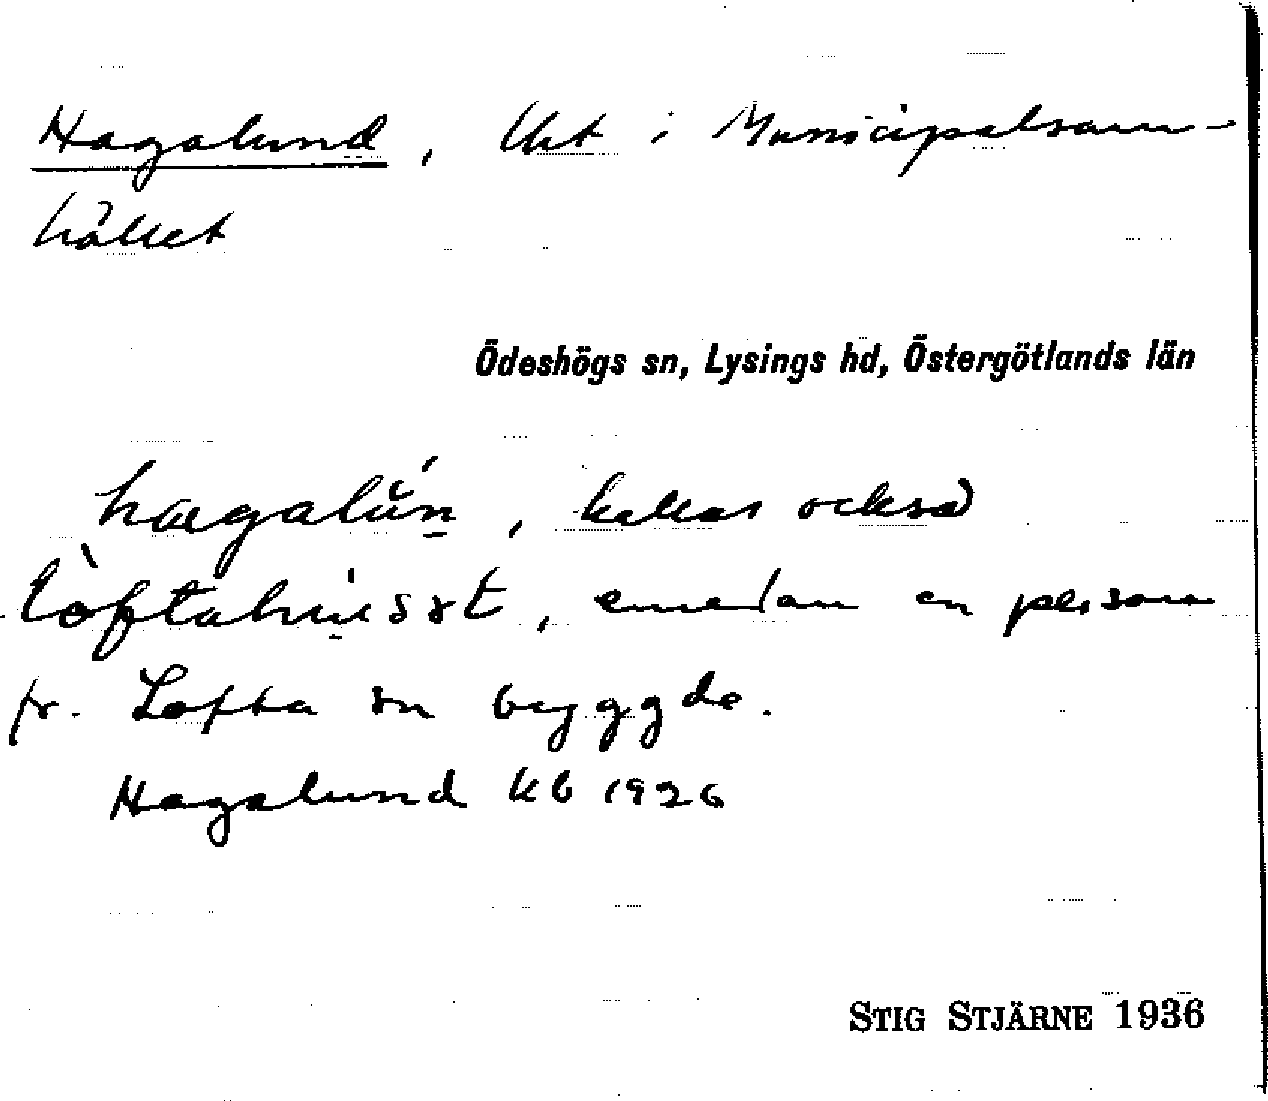 Hagalund, Uht i Municipalsam-
hället
Ödeshögs sn, Lysings hd, Östergötlands län
hagalún, kallas också
lòftahusət, emedan en person
fr. Lofta sn byggde.
Hagalund kb 1926
STIG STJÄRNE 1936